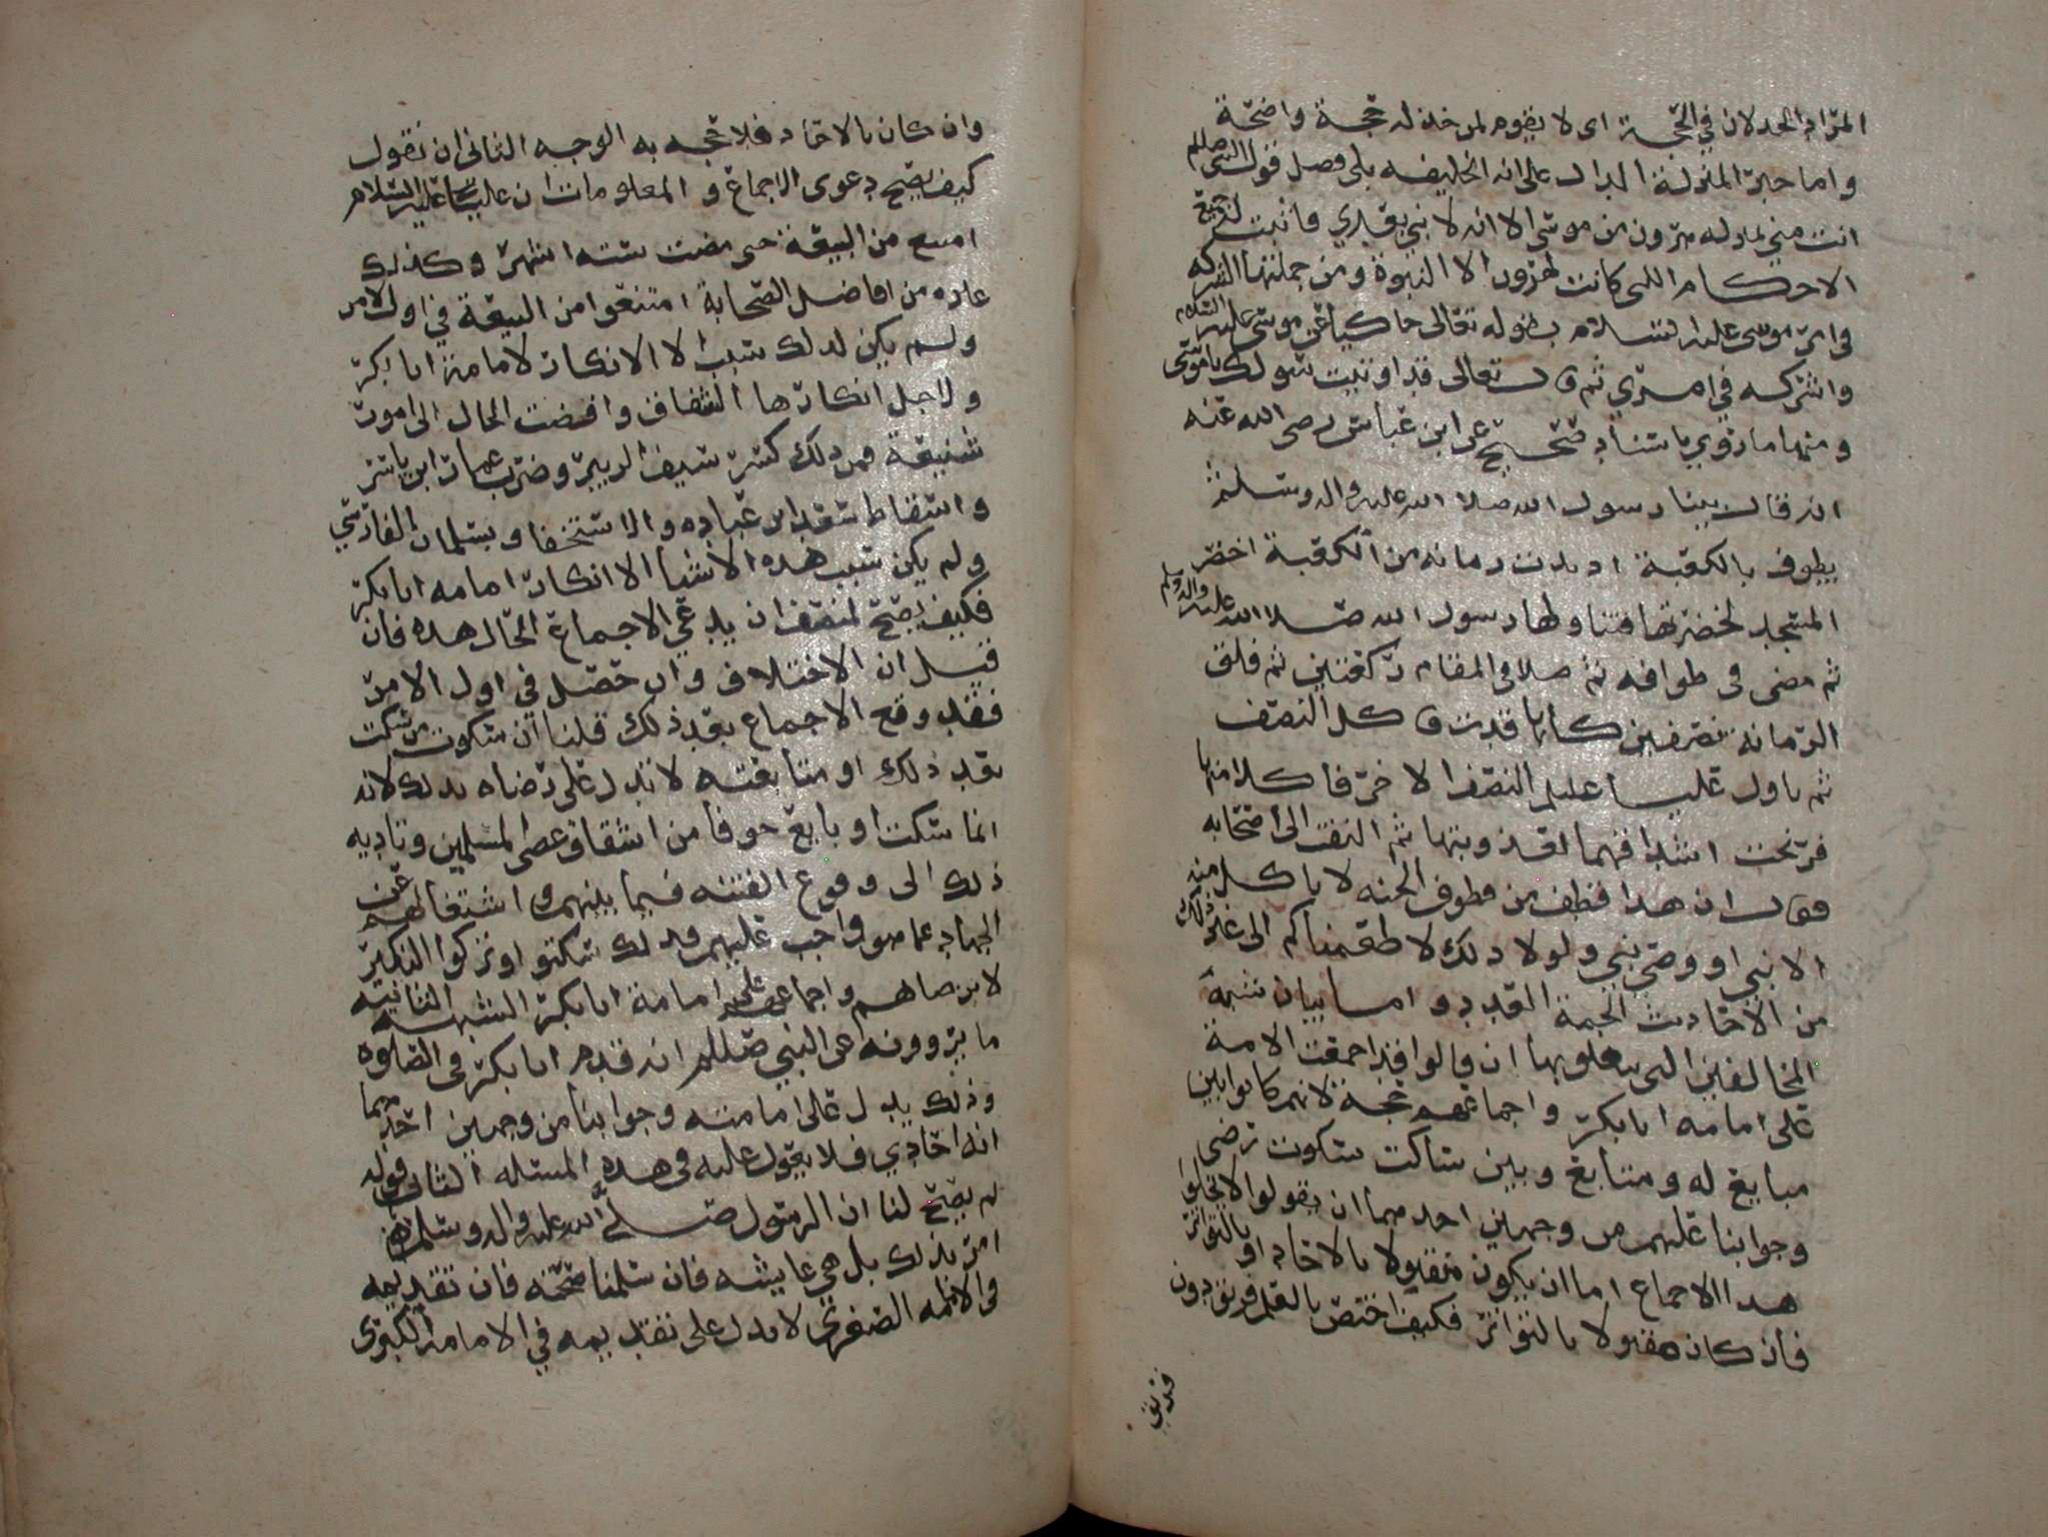 المراد الخذلان في الحجة اى لا يقوم لمن خذله حجة واضحة
واما خبر المنزلة الدال على انه الخليفه بلى فصل فقول النبي صللم
انت مني بمنزله هرون من موسى الا انه لا نبي بعدي فاثبت له جميع
الاحكام اللتى كانت لهرون الا النبوة ومن جملتها الشركه
في امر موسى عليه السلام بقوله تعالى حاكيا عن موسى عليه السلام
واشركه في امري ثم قال تعالى قد اوتيت سولك يا موسى
ومنها ما روي باسناد صحيح عن ابن عباس رضى الله عنه
انه قال بينا رسول الله صلا الله عليه واله وسلم
يطوف بالكعبة اد بدت رمانه من الكعبة اخضر
المسجد لخضرتها فتناولها رسول الله صلا الله عليه واله وسلم
ثم مضى في طوافه ثم صلا في المقام ركعتين ثم فلق
الرمانه نصفين كانها قدت فاكل النصف
ثم ناول عليا عليلم النصف الاخر فاكلا منها
فرنحت اشداقهما لعذوبتها ثم التفت الى اصحابه
فقال ان هدا قطف من قطوف الجنه لا ياكل منه
الا نبي او وصي نبي ولولا دلك لاطعمناكم الى غير ذلك
من الاحاديث الجمة العدد واما بيان شبهة
المخالفين التى يتعلق بها ان قالوا قد اجمعت الامة
على امامه ابا بكر واجماعهم حجة لانهم كانوا بين
مبايع له ومتابع وبين ساكت سكوت رضى
وجوابنا عليهم من وجهين احدهما ان يقولوا لا يخلوا
هدا الاجماع اما ان يكون منقولا بالاحاد او بالتواتر
فان كان منقولا بالتواتر فكيف اختص بالعلم فريق دون
فريق
وان كان بالاحاد فلا حجه به الوجه الثانى ان نقول
كيف يصح دعوى الاجماع و المعلومات ان عليا عليه السلام
امتنع من البيعة حتى مضت سته اشهر وكذلك
غيره من افاضل الصحابة امتنعوا من البيعة في اول الامر
ولم يكن لدلك سبب الا الانكار لامامة ابا بكر
ولاجل انكارها الشقاق وافضت الحال الى امور
شنيعة فمن دلك كسر سيف الزبير وضرب عمار ابن ياسر
واسقاط سعد ابن عباده والاستخفاف بسلمان الفارسي
ولم يكن سبب هده الاشيا الا انكار امامه ابا بكر
فكيف يصح لمنصف ان يدعي الاجماع الحال هده فان
قيل ان الاختلاف وان حصل في اول الامر
فقد وقع الاجماع بعد ذلك قلنا ان سكوت من سكت
بعد ذلك او متابعته لا تدل على رضاه بدلك لانه
انما سكت او بايع خوفا من اشقاق عصى المسلمين وتاديه
ذلك الى وقوع الفتنه فيما بينهم واشتغالهم عن
الجهاد عما هو واجب عليهم فدلك سكتو او تركوا النكير
لا برضاهم واجماعهم على امامة ابا بكر الشبهه الثانيه
ما يروونه عن النبي صللم انه قدم ابا بكر في الصلوه
وذلك يدل على امامته وجوابنا من وجهين احدهما
انه احادي فلا يعول عليه في هده المسئله الثانى قوله
لم يصح لنا ان الرسول صلى الله عليه واله وسلم هو
امر بذلك بل هي عايشه فان سلمنا صحته فان تقديمه
في الامامه الصغرى لا يدل على تقديمه في الامامة الكبرى